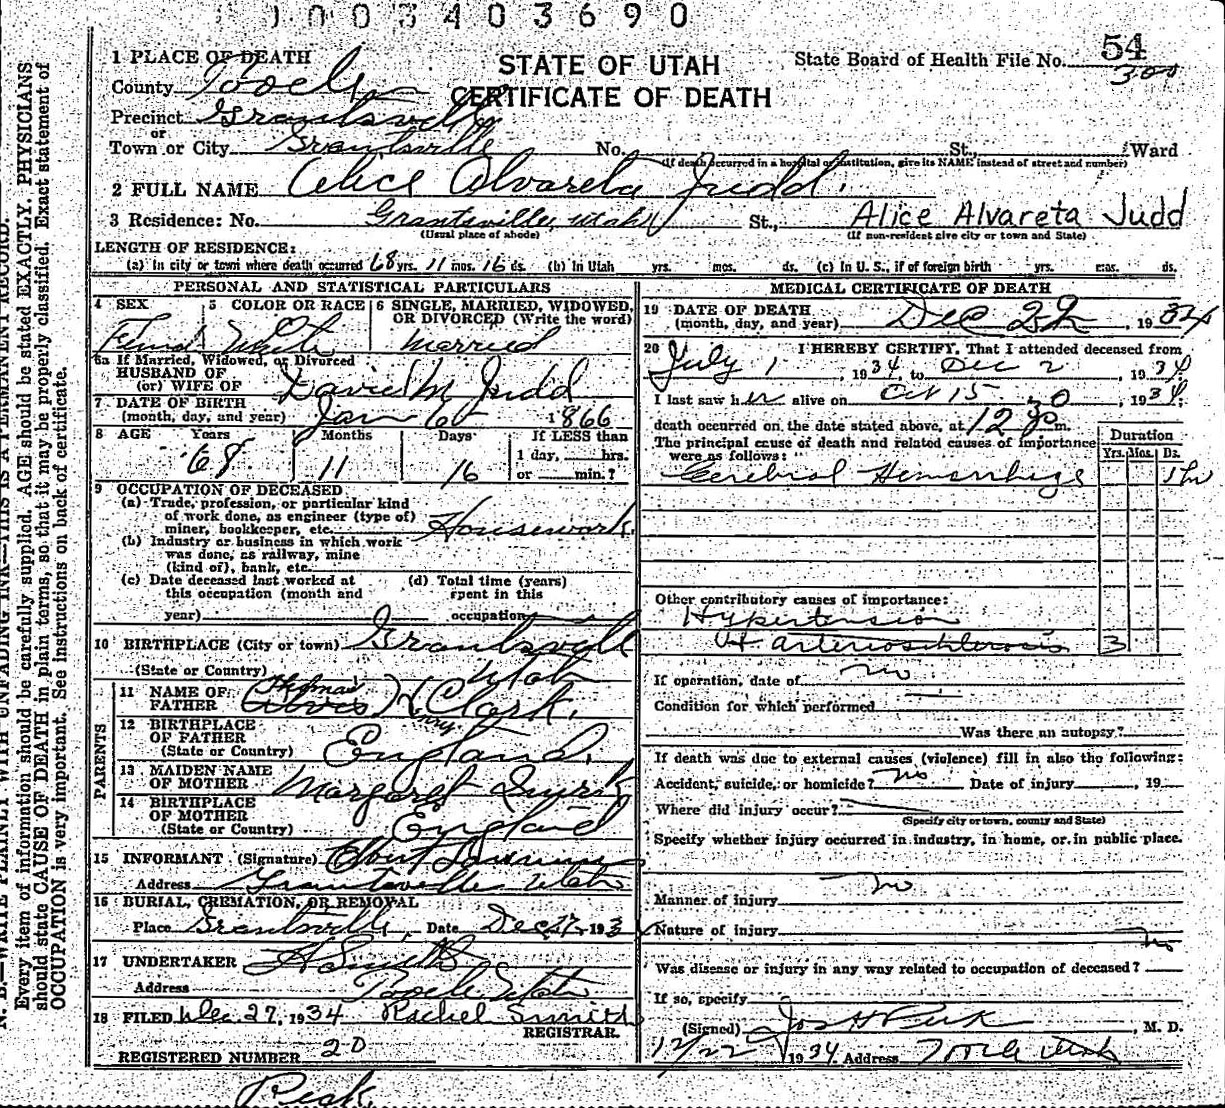 1003403690
1 PLACE OF DEATH
STATE OF UTAH
CERTIFICATE OF DEATH
State Board of Health File No. 54
300
County Tooele
Precinct Grantsville
or
Town or City Grantsville No. St., Ward
(If death occurred in a hospital or institution, give its NAME instead of street and number)
2 FULL NAME Alice Alvareta Judd.
3 Residence: No. Grantsville, Utah St., Alice Alvareta Judd
(Usual place of abode) (If non-resident give city or town and State)
LENGTH OF RESIDENCE:
(a) In city or town where death occurred 68 yrs. 11 mos. 16 ds. (b) In Utah yrs. mos. ds. (c) In U. S., if of foreign birth yrs. mos. ds.
PERSONAL AND STATISTICAL PARTICULARS
4 SEX 5 COLOR OR RACE 6 SINGLE, MARRIED, WIDOWED,
OR DIVORCED (Write the word)
White Married
6a If Married, Widowed, or Divorced
HUSBAND OF
(or) WIFE OF David M Judd
7 DATE OF BIRTH
(month, day, and year) Jan 1866
8 AGE Years Months Days If LESS than
1 day, hrs.
68 11 16 or min.?
9 OCCUPATION OF DECEASED
(a) Trade, profession, or particular kind
of work done, as engineer (type of)
miner, bookkeeper, etc. Housework.
(b) Industry or business in which work
was done, as railway, mine
(kind of), bank, etc.
(c) Date deceased last worked at (d) Total time (years)
this occupation (month and spent in this
year) occupation
10 BIRTHPLACE (City or town) Grantsville
(State or Country) Utah
PARENTS
11 NAME OF Thomas
FATHER H Clark.
enry
12 BIRTHPLACE
OF FATHER England.
(State or Country)
13 MAIDEN NAME
OF MOTHER Margaret
14 BIRTHPLACE
OF MOTHER England
(State or Country)
15 INFORMANT (Signature)
Address Grantsville Utah
16 BURIAL, CREMATION, OR REMOVAL
Place Grantsville, Date Dec 27, 193
17 UNDERTAKER
Address Tooele Utah
18 FILED Dec 27, 1934 Rachel Smith
REGISTRAR.
REGISTERED NUMBER 20
Peck.
MEDICAL CERTIFICATE OF DEATH
19 DATE OF DEATH
(month, day, and year) Dec , 1934
20 I HEREBY CERTIFY, That I attended deceased from
July 1, 1934, to Dec 2, 1934
I last saw her alive on Oct 15, 1934;
death occurred on the date stated above, at 12 30 m.
The principal cause of death and related causes of importance
were as follows:
Duration
Yrs. Mos. Ds.
Cerebral Hemorrhage 1 hr
Other contributory causes of importance:
Hypertension
arterioschlerosis 3
If operation, date of no
Condition for which performed
Was there an autopsy?
If death was due to external causes (violence) fill in also the following:
Accident, suicide, or homicide? no Date of injury , 19
Where did injury occur?
(Specify city or town, county and State)
Specify whether injury occurred in industry, in home, or in public place.
no
Manner of injury
Nature of injury
no
Was disease or injury in any way related to occupation of deceased?
If so, specify
(Signed) Jos H Peck, M. D.
12/22 1934 Address Tooele Utah
N. B.—WRITE PLAINLY WITH UNFADING INK—THIS IS A PERMANENT RECORD.
Every item of information should be carefully supplied. AGE should be stated EXACTLY. PHYSICIANS
should state CAUSE OF DEATH in plain terms, so that it may be properly classified. Exact statement of
OCCUPATION is very important. See instructions on back of certificate.